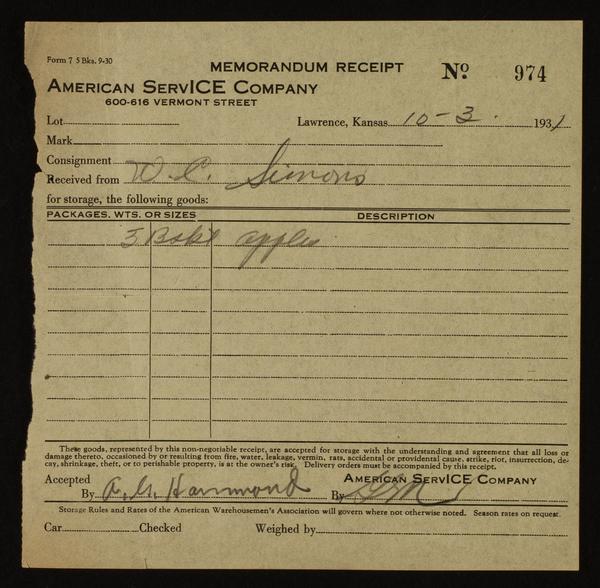 Form 7 5 Bks. 9-30
MEMORANDUM RECEIPT Nº 974
AMERICAN SERVICE COMPANY
600-616 VERMONT STREET
Lot Lawrence, Kansas 10-3. 1931
Mark
Consignment
Received from W. C. Simons
for storage, the following goods:
PACKAGES. WTS. OR SIZES DESCRIPTION
3 Bskt apples
These goods, represented by this non-negotiable receipt, are accepted for storage with the understanding and agreement that all loss or
damage thereto, occasioned by or resulting from fire, water, leakage, vermin, rats, accidental or providental cause, strike, riot, insurrection, de-
cay, shrinkage, theft, or to perishable property, is at the owner's risk. Delivery orders must be accompanied by this receipt.
Accepted AMERICAN SERVICE COMPANY
By Hammond By
Storage Rules and Rates of the American Warehousemen's Association will govern where not otherwise noted. Season rates on request.
Car Checked Weighed by